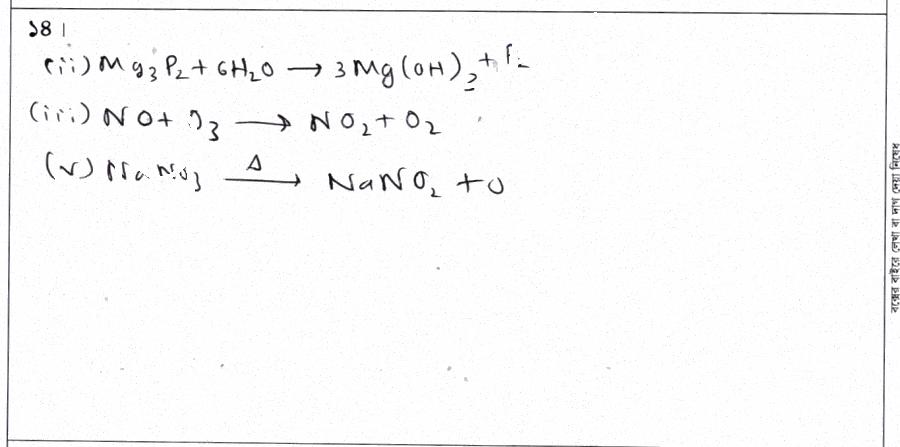 ১৪।
(ii) Mg₃P₂ + 6H₂O → 3Mg(OH)₂ +
(iii) NO + O₃ → NO₂ + O₂
(v) NaNO₃ Δ→ NaNO₂ + O
বক্সের বাইরে লেখা বা দাগ দেয়া নিষেধ